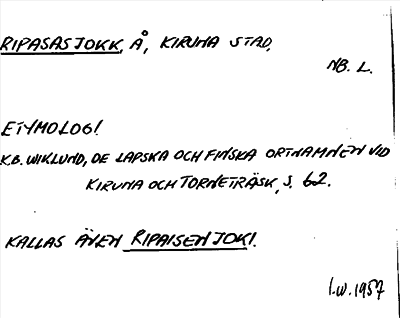 RIPASASJOKK, Å, KIRUNA STAD,
NB. L.
ETYMOLOGI
K.B. WIKLUND, DE LAPSKA OCH FINSKA ORTNAMNEN VID
KIRUNA OCH TORNETRÄSK, S. 62.
KALLAS ÄVEN RIPAISENJOKI.
I.W. 1957